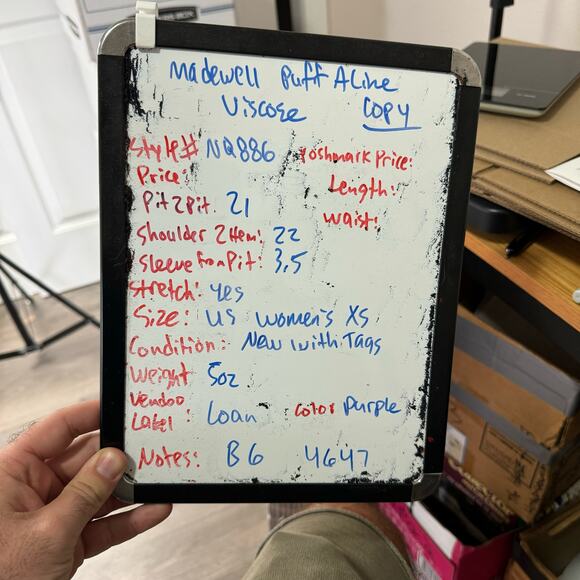 Madewell Puff A Line
Viscose COPY
Style# NQ886 Poshmark Price:
Price: Length:
Pit2Pit. 21 waist:
Shoulder 2 Hem: 22
Sleeve From Pit: 3.5
Stretch: yes
Size: US women's XS
Condition: New with Tags
Weight 5oz
Vendoo
Label: Loan Color Purple
Notes: B6 4647